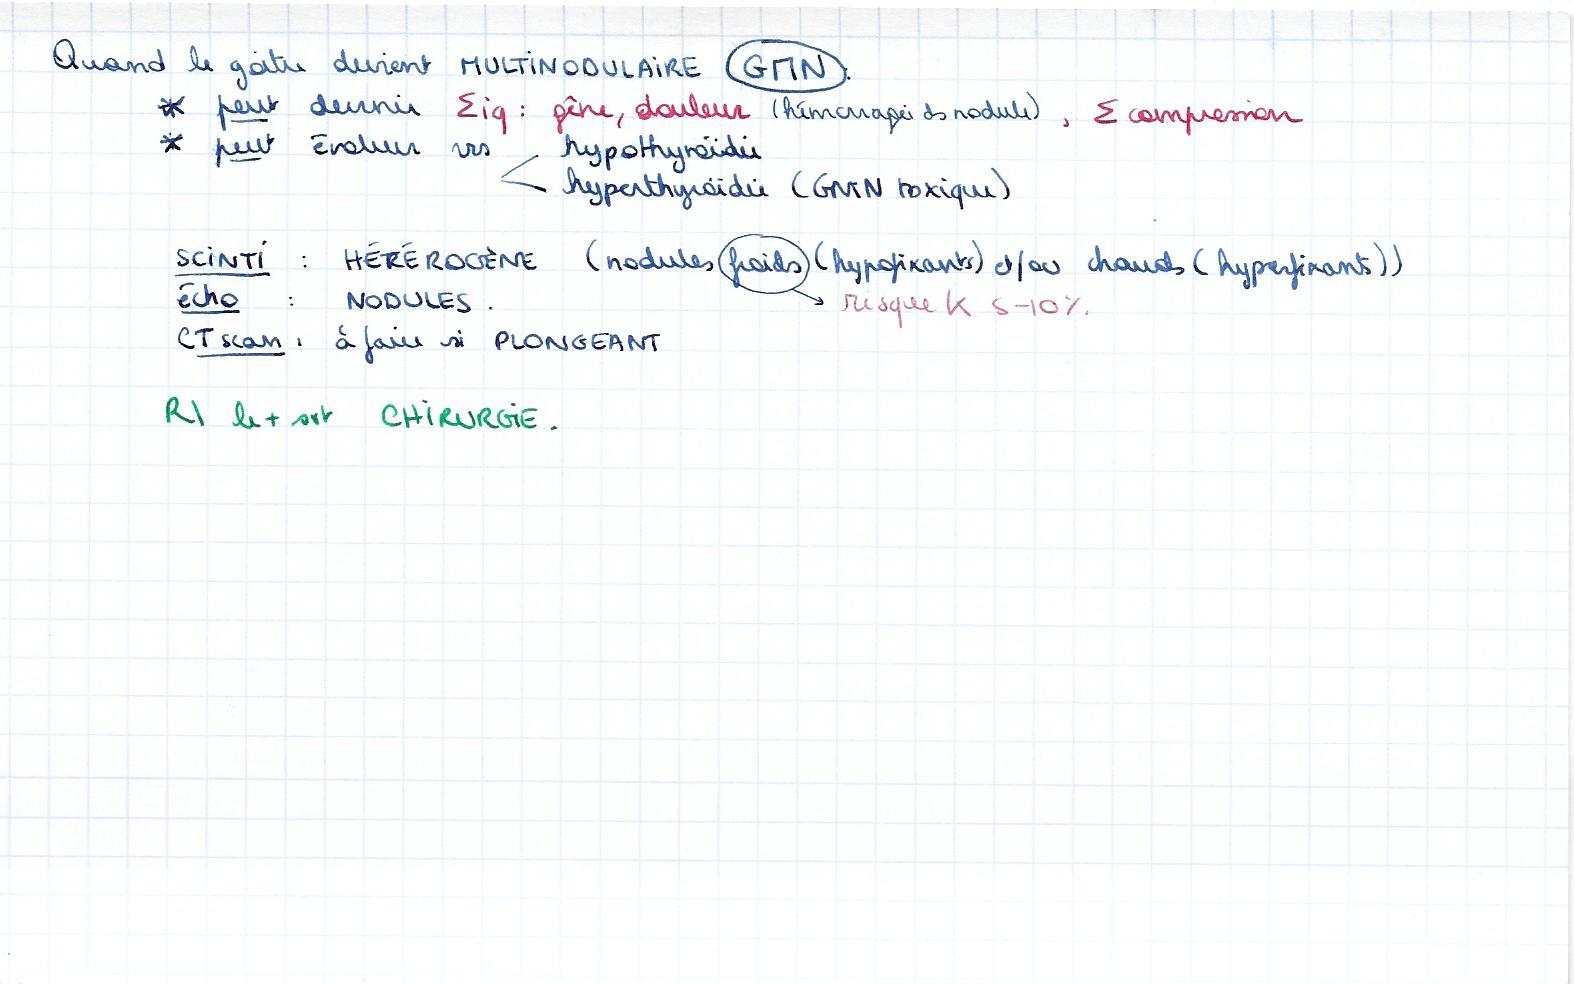 Quand le goitre devient MULTINODULAIRE (GMN).
* peut devenir Σiq : gêne, douleur (hémorragie ds nodule), Σ compression
* peut évoluer vers < hypothyroïdie
hyperthyroïdie (GMN toxique)
SCINTI : HÉRÉROGÈNE (nodules froids (hypofixants) et/ou chauds (hyperfixants))
écho : NODULES.
→ risque K 5-10%.
CT scan : à faire si PLONGEANT
R\ le + svt CHIRURGIE.